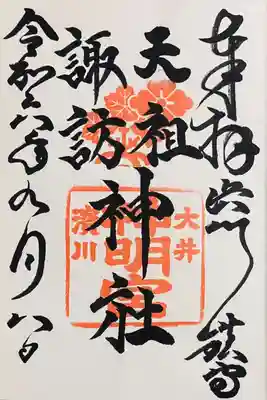 奉拝
天祖
諏訪
神社
大井
神明宮
濱川
令和六年九月八日